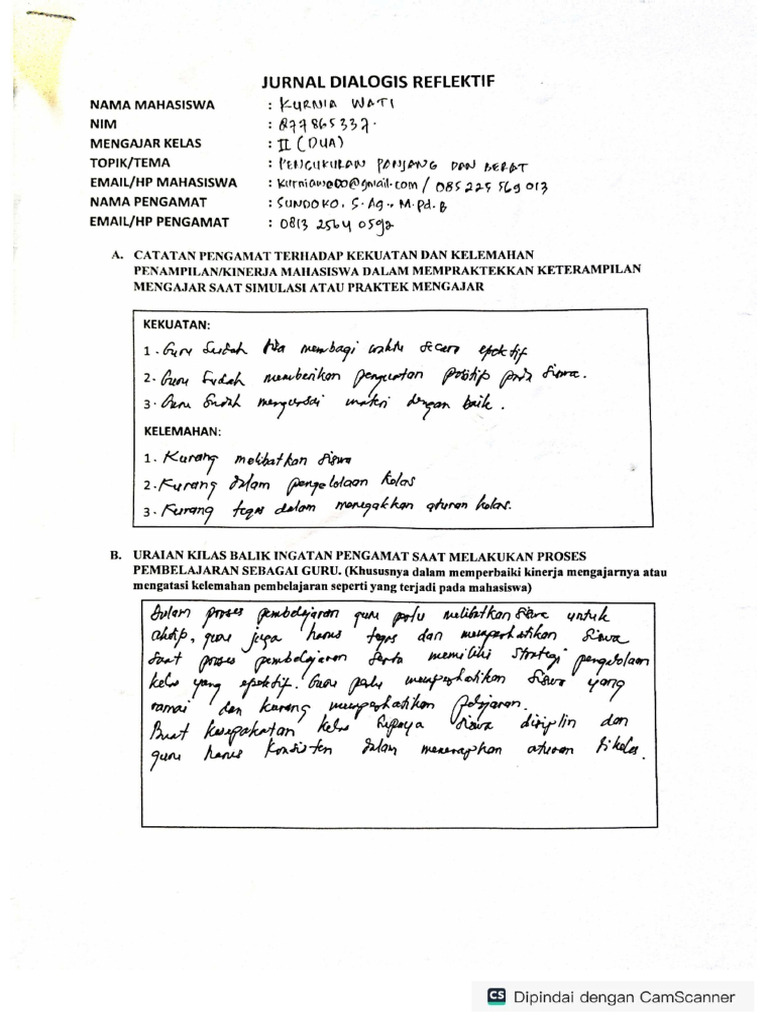 JURNAL DIALOGIS REFLEKTIF
NAMA MAHASISWA : KURNIA WATI
NIM : 877865337.
MENGAJAR KELAS : II (DUA)
TOPIK/TEMA : PENGUKURAN PANJANG DAN BERAT
EMAIL/HP MAHASISWA : / 085 225 569 013
NAMA PENGAMAT : SUNDOKO. S.Ag., M.Pd.B
EMAIL/HP PENGAMAT : 0813 2564 0592
A. CATATAN PENGAMAT TERHADAP KEKUATAN DAN KELEMAHAN
PENAMPILAN/KINERJA MAHASISWA DALAM MEMPRAKTEKKAN KETERAMPILAN
MENGAJAR SAAT SIMULASI ATAU PRAKTEK MENGAJAR
KEKUATAN:
1. Guru Sudah bisa membagi waktu secara epektif
2. Guru Sudah memberikan penguatan positif pada siswa.
3. Guru Sudah menguasai materi dengan baik.
KELEMAHAN:
1. Kurang melibatkan siswa
2. Kurang dalam pengelolaan kelas
3. Kurang tegas dalam menegakkan aturan kelas.
B. URAIAN KILAS BALIK INGATAN PENGAMAT SAAT MELAKUKAN PROSES
PEMBELAJARAN SEBAGAI GURU. (Khususnya dalam memperbaiki kinerja mengajarnya atau
mengatasi kelemahan pembelajaran seperti yang terjadi pada mahasiswa)
Dalam proses pembelajaran guru perlu melibatkan siswa untuk
aktip, guru juga harus tegas dan memperhatikan siswa
saat proses pembelajaran serta memiliki strategi pengelolaan
kelas yang epektif. Guru perlu memperhatikan siswa yang
ramai dan kurang memperhatikan pelajaran.
Buat kesepakatan kelas supaya siswa disiplin dan
guru harus konsisten dalam menerapkan aturan di kelas.
CS Dipindai dengan CamScanner